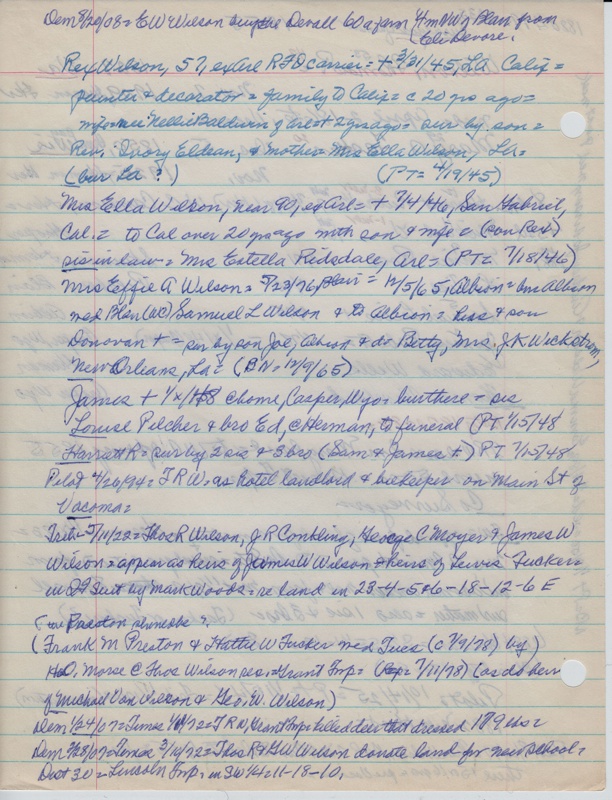 Dem 8/20/08 = E W Wilson buys the Devall 60 a farm 4 m NW Blair from
Eli Devore.
Rex Wilson, 57, ex Arl RFD carrier = + 3/31/45, LA Calif =
painter & decorator = family to Calif = c 20 yrs ago =
mfe = nee Nellie Baldwin of Arl = + 2 yrs ago = sur by son =
Rev. Ivory Eldean, & mother = Mrs Ella Wilson, LA =
(bur LA ?) (PT = 4/19/45)
Mrs Ella Wilson, near 90, ex Arl = + 7/4/46, San Gabriel,
Cal = to Cal over 20 yrs ago with son & mfe = (son Rex)
sis in law = Mrs Estella Ridsdale, Arl = (PT = 7/18/46)
Mrs Effie A Wilson = 9/23/76, Blair = 12/5/65, Albion = bur Albion
med Blair (ac) Samuel L Wilson & to Albion = hus & son
Donovan + = sur by son Joe, Albion & dr Betty, Mrs. J K Wickstrom,
New Orleans, La = (EN = 12/9/65)
James + 1/x/48 c home, Casper, Wyo = bur there = sis
Louise Pilcher & bro Ed, C Herman, to funeral (PT 1/15/48
Harriett R = sur by 2 sis & 3 bro (Sam & James +) PT 1/15/48
Pilot 4/26/94 = T R W = as hotel landlord & beekeeper on Main St of
Vacoma =
Trib = 5/11/22 = Thos R Wilson, J R Conkling, George C Moyer & James W
Wilson = appear as heirs of James W Wilson & heirs of Lewis Tucker
in QT suit by Mark Woods = re land in 23-4-5 & 6-18-12-6 E
Preston
(Frank M Preston & Hattie W Tucker med Tues (c 7/9/78) by
H.O. Morse C Thos Wilson res. = Grant Tmp = 7/11/78) (as do heirs
of Michael Van Wilson & Geo. W. Wilson)
Dem 1/24/07 = Times 1/11/72 = T R W, Grant Tmp killed deer that dressed 179 lbs =
Dem 3/28/07 = Times 3/14/72 = Thos R & GW Wilson donate land for new school =
Dist 30 = Lincoln Tmp, in SW 1/4 = 11-18-10,